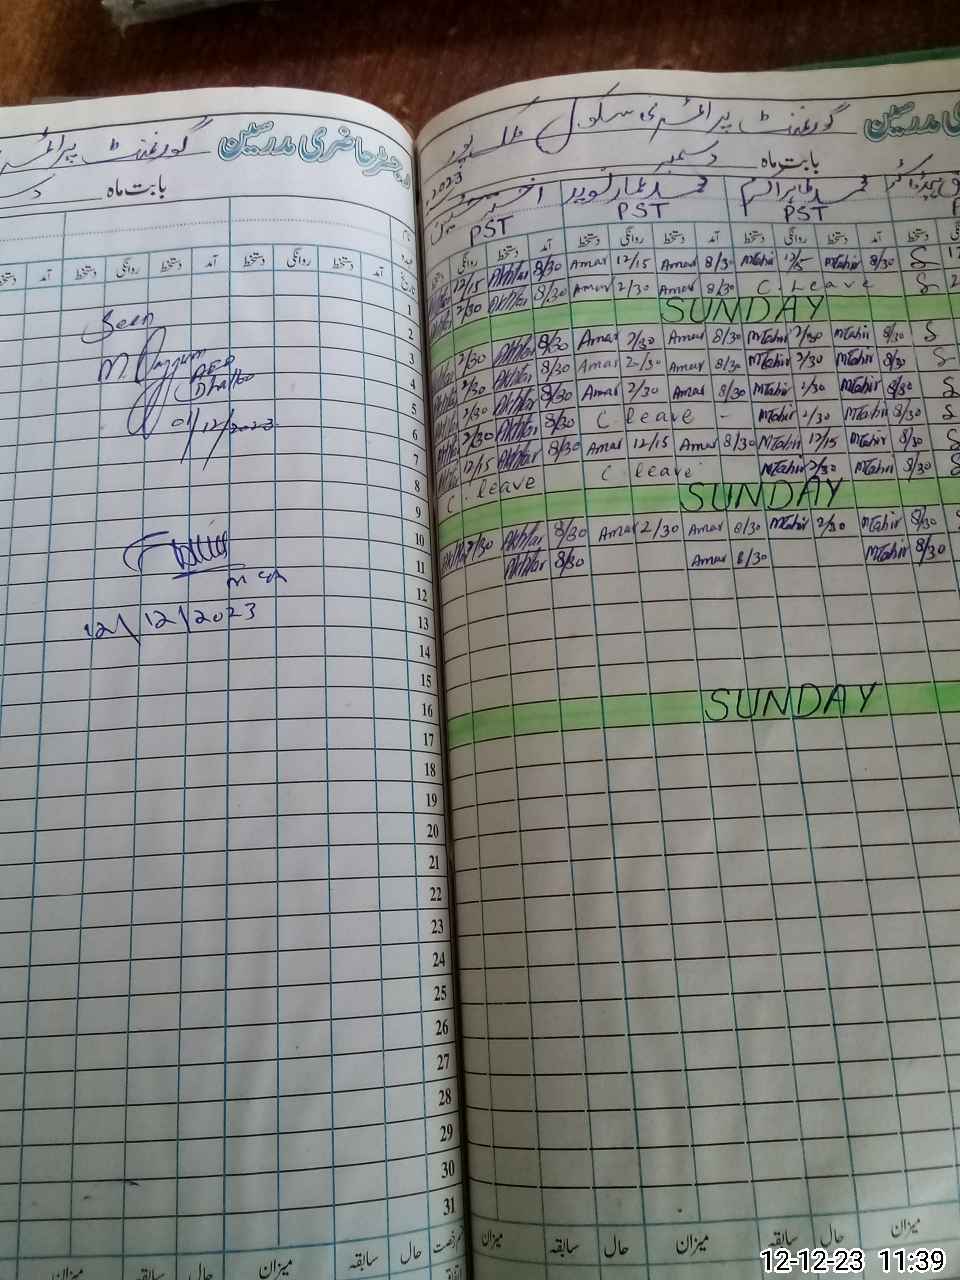 رجسٹر حاضری مدرسین گورنمنٹ پرائمری
بابت ماہ
دستخط آمد دستخط روانگی دستخط آمد دستخط روانگی دستخط آمد
تاریخ
Seen
M
AEO
01/12/2023
MEA
12/12/2023
1
2
3
4
5
6
7
8
9
10
11
12
13
14
15
16
17
18
19
20
21
22
23
24
25
26
27
28
29
30
31
میزان سابقہ حال میزان سابقہ حال
گورنمنٹ پرائمری سکول
بابت ماہ دسمبر 2023
محمد طاہر محمد عمار تنویر اختر حسین
PST PST PST
روانگی دستخط آمد دستخط روانگی دستخط آمد دستخط روانگی دستخط آمد دستخط
12/15 Akhtar 8/30 Amar 12/15 Amar 8/30 MTahir 12/15 MTahir 8/30
2/30 Akhtar 8/30 Amar 2/30 Amar 8/30 C. Leave
SUNDAY
2/30 Akhtar 8/30 Amar 2/30 Amar 8/30 MTahir 2/30 MTahir 8/30
2/30 Akhtar 8/30 Amar 2/30 Amar 8/30 MTahir 2/30 MTahir 8/30
2/30 Akhtar 8/30 Amar 2/30 Amar 8/30 MTahir 2/30 MTahir 8/30
2/30 Akhtar 8/30 C. leave - MTahir 2/30 MTahir 8/30
12/15 Akhtar 8/30 Amar 12/15 Amar 8/30 MTahir 12/15 MTahir 8/30
C. leave C. leave MTahir 2/30 MTahir 8/30
SUNDAY
Akhtar 2/30 Akhtar 8/30 Amar 2/30 Amar 8/30 MTahir 2/30 MTahir 8/30
Akhtar 8/30 Amar 8/30 MTahir 8/30
SUNDAY
میزان سابقہ حال میزان سابقہ حال میزان
12-12-23 11:39